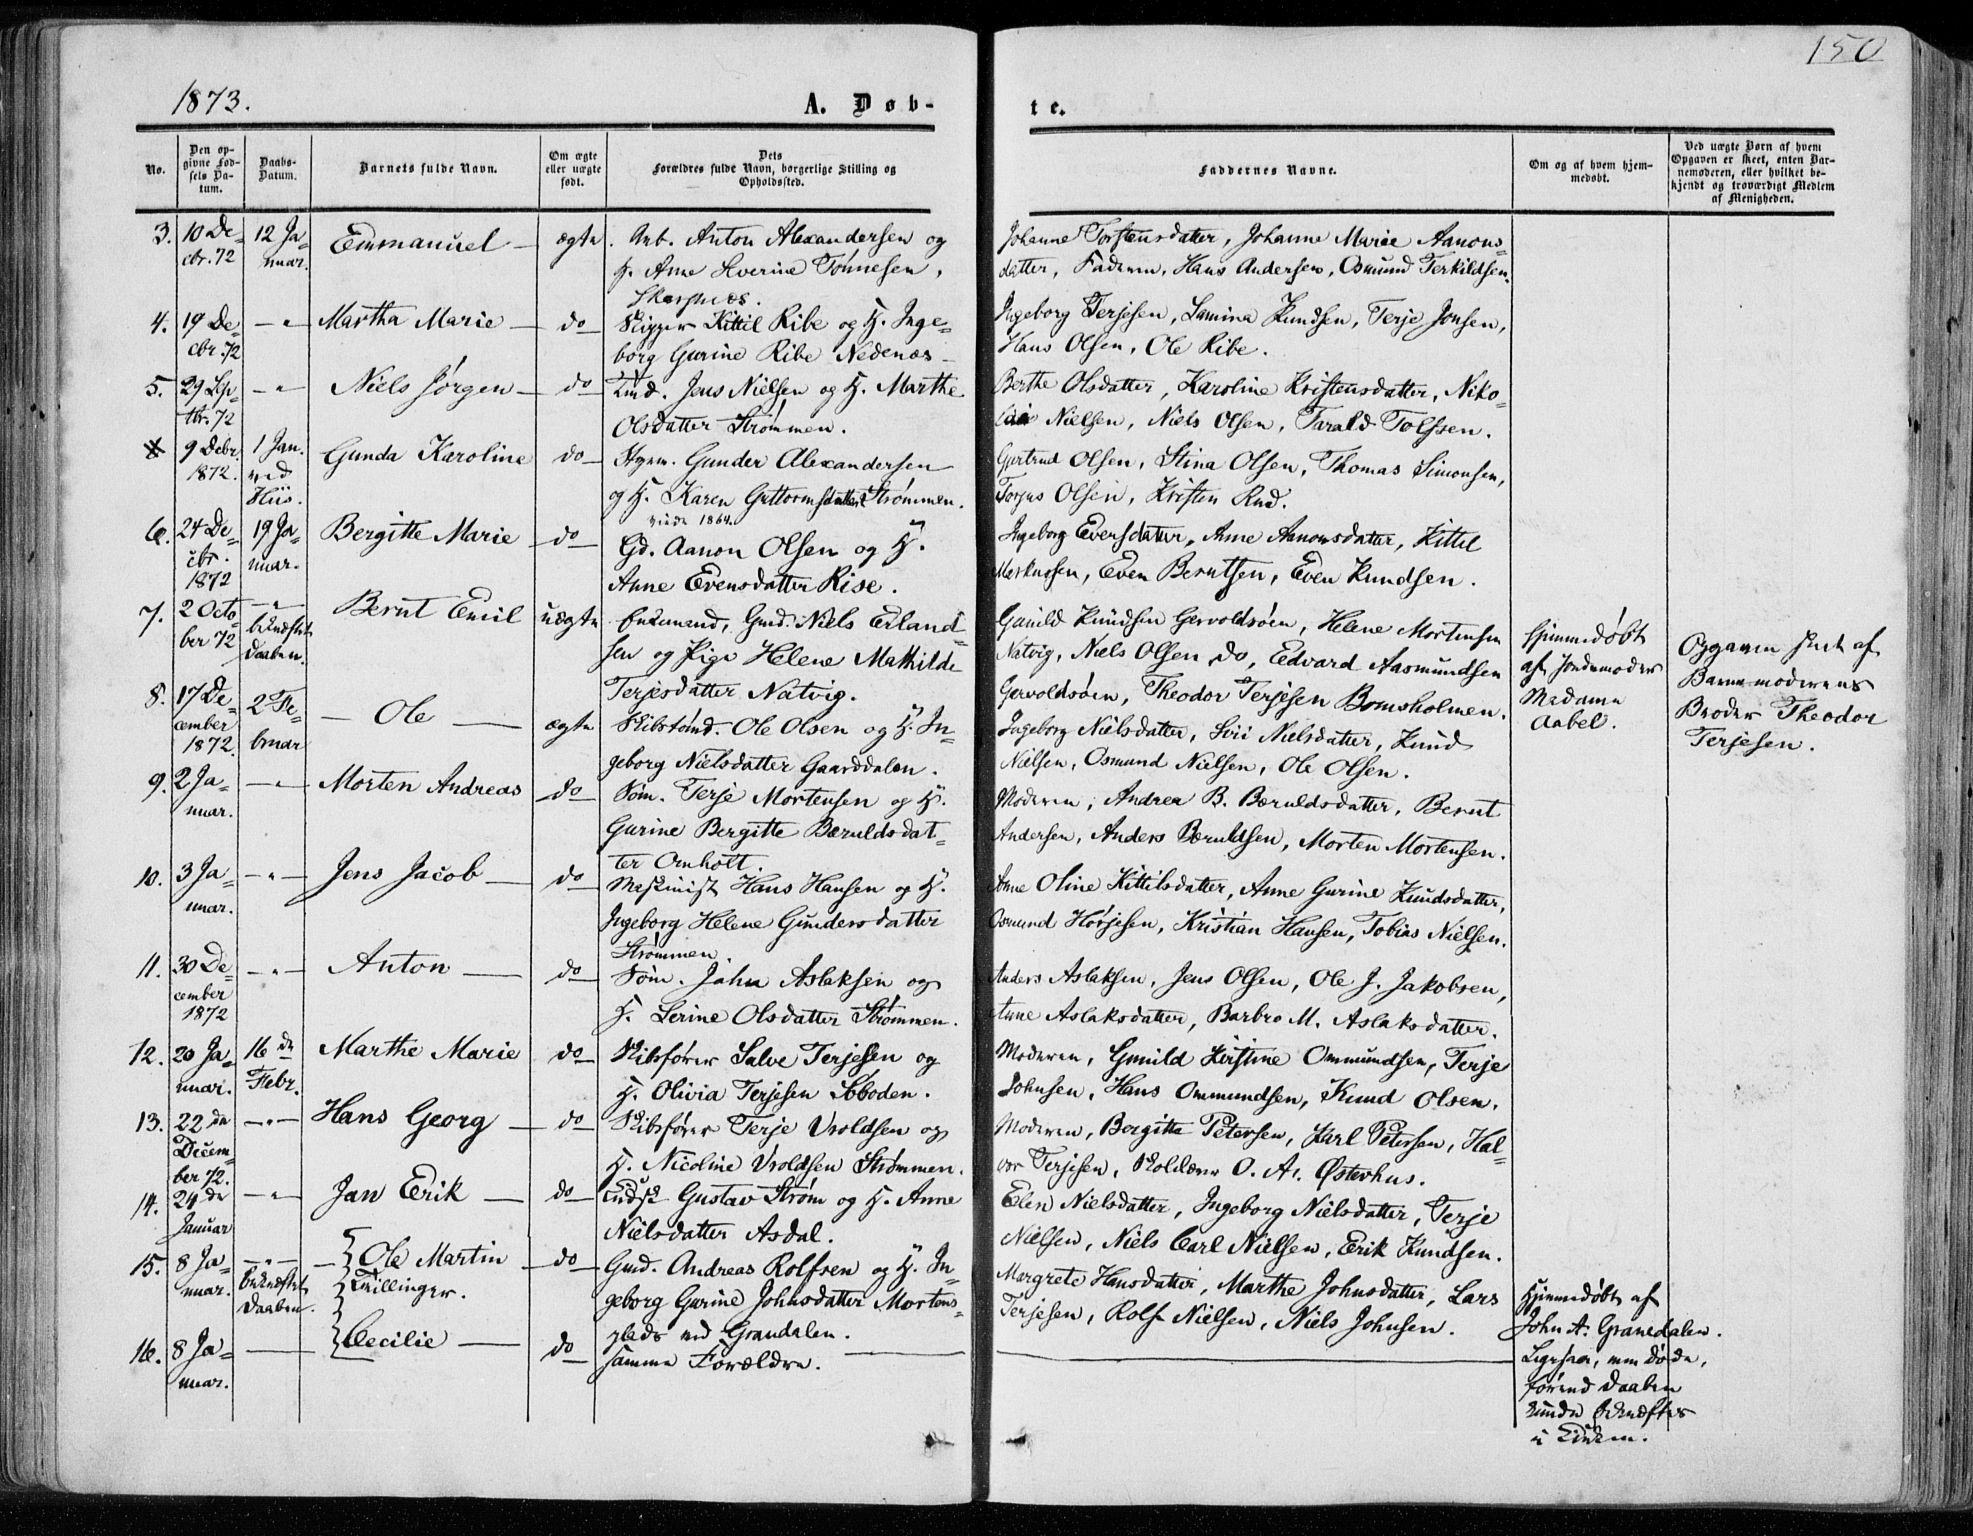 150
1873.
A. Døb-
te.
No.
Den op-
givne Fød-
sels Da-
tum.
Daabs-
Datum.
Barnets fulde Navn.
Om ægte
eller uægte
født.
Dets
Forældres fulde Navn, borgerlige Stilling og
Opholdssted.
Faddernes Navne.
Om og af hvem hjem-
medøbt.
Ved uægte Børn af hvem
Opgaven er skeet, enten Bar-
nemoderen, eller hvilket be-
kjendt og troværdigt Medlem
af Menigheden.
3. 10 De- 12 Ja- Emmanuel — ægte. Arb. Anton Alexandersen og
cbr. 72 nuar. H. Anne Severine Tønnesen,
Skarpnes.
Johanne Torstensdatter, Johanne Marie Aanons-
datter, Faderen, Hans Andersen, Osmund Terkildsen.
4. 19 De- — " Martha Marie — do Skipper Kittil Ribe og H. Inge-
cbr. 72 borg Gurine Ribe Nedenæs —
Ingeborg Terjesen, Lamina Knudsen, Terje Jonsen,
Hans Olsen, Ole Ribe.
5. 29 Sep- — " Niels Jørgen — do Tmd. Jens Nielsen og H. Marthe
tbr. 72 Olsdatter Strømmen.
Berthe Olsdatter, Karoline Kristensdatter, Niko-
lai Nielsen, Niels Olsen, Tarald Tolfsen.
9 Debr. 1 Jan. Gunda Karoline do — Styrm. Gunder Alexandersen
1872. ved og H. Karen Guttormsdatter Strømmen.
Hiis. viede 1864.
Gjertrud Olsen, Stina Olsen, Thomas Simonsen,
Torjus Olsen, Kristen Rud.
6. 24 De- 19 Ja- Bergitte Marie — do — Gd. Aanon Olsen og H.
cbr. nuar. Anne Evensdatter Rise.
1872
Ingeborg Evensdatter, Anne Aanonsdatter, Kittil
Markussen, Even Berntsen, Even Knudsen.
7. 2 Octo- — " — Bernt Emil uægte Enkemand, Gmd. Niels Erland-
ber 72 bekræftet sen og Pige Helene Mathilde
Daaben. Terjesdatter Natvig.
Gunild Knudsen Gervoldsøen, Helene Mortensen
Natvig, Niels Olsen do, Edvard Aasmundsen
Gervoldsøen, Theodor Terjesen Bomsholmen.
Hjemmedøbt
af Jordemoder
Madame
Aabel.
Opgaven skeet af
Barnemoderens
Broder Theodor
Terjesen.
8. 17 De- 2 Fe- — Ole — ægte Skibstømd. Ole Olsen og H. In-
cember bruar geborg Nielsdatter Gaarddalen.
1872.
Ingeborg Nielsdatter, Siri Nielsdatter, Knud
Nielsen, Osmund Nielsen, Ole Olsen.
9. 2 Ja- — " — Morten Andreas do — Søm. Terje Mortensen og H.
nuar. Gurine Bergitte Bæruldsdat-
ter Omholt.
Moderen, Andrea B. Bæruldsdatter, Bernt
Andersen, Anders Bæruldsen, Morten Mortensen.
10. 3 Ja- — " — Jens Jacob — do Maskinist Hans Hansen og H.
nuar. Ingeborg Helene Gundersdatter
Strømmen.
Anne Oline Kittilsdatter, Anne Gurine Knudsdatter,
Osmund Hørjesen, Kristian Hansen, Tobias Nielsen.
11. 30 De- — " — Anton — do Søm. John Aslaksen og
cember H. Serine Olsdatter Strømmen.
1872
Anders Aslaksen, Jens Olsen, Ole J. Jakobsen,
Anne Aslaksdatter, Barbro M. Aslaksdatter.
12. 20 Ja- 16 de Marthe Marie do — Skibsfører Salve Terjesen og
nuar. Febr. H. Olivia Terjesen Sbboden.
Moderen, Gunild Kirstine Ommundsen, Terje
Johnsen, Hans Ommundsen, Knud Olsen.
13. 22 de — " — Hans Georg — do — Skibsfører Terje Vroldsen og
Decem- H. Nicoline Vroldsen Strømmen.
ber 72.
Moderen, Bergitte Petersen, Karl Petersen, Hal-
vor Terjesen, Skolelærer O. A. Østerhus.
14. 24 de — " Jan Erik — do — Indsk Gustav Strøm og H. Anne
Januar Nielsdatter Asdal.
Elen Nielsdatter, Ingeborg Nielsdatter, Terje
Nielsen, Niels Carl Nielsen, Erik Knudsen.
15. 8 Ja- — " — Ole Martin — do — Gmd. Andreas Rolfsen og H. In-
nuar. bekræftet Tvillinger. geborg Gurine Johnsdatter Mortens-
Daaben. plads ved Grandalen.
Margrete Hansdatter, Marthe Johnsdatter, Lars
Terjesen, Rolf Nielsen, Niels Johnsen.
Hjemmedøbt af
John A. Granedalen.
Ligesaa, men døde,
førend Daaben
kunde bekræftes
i Kirken.
16. 8 Ja- — Cecilie — do samme Forældre. —
nuar.